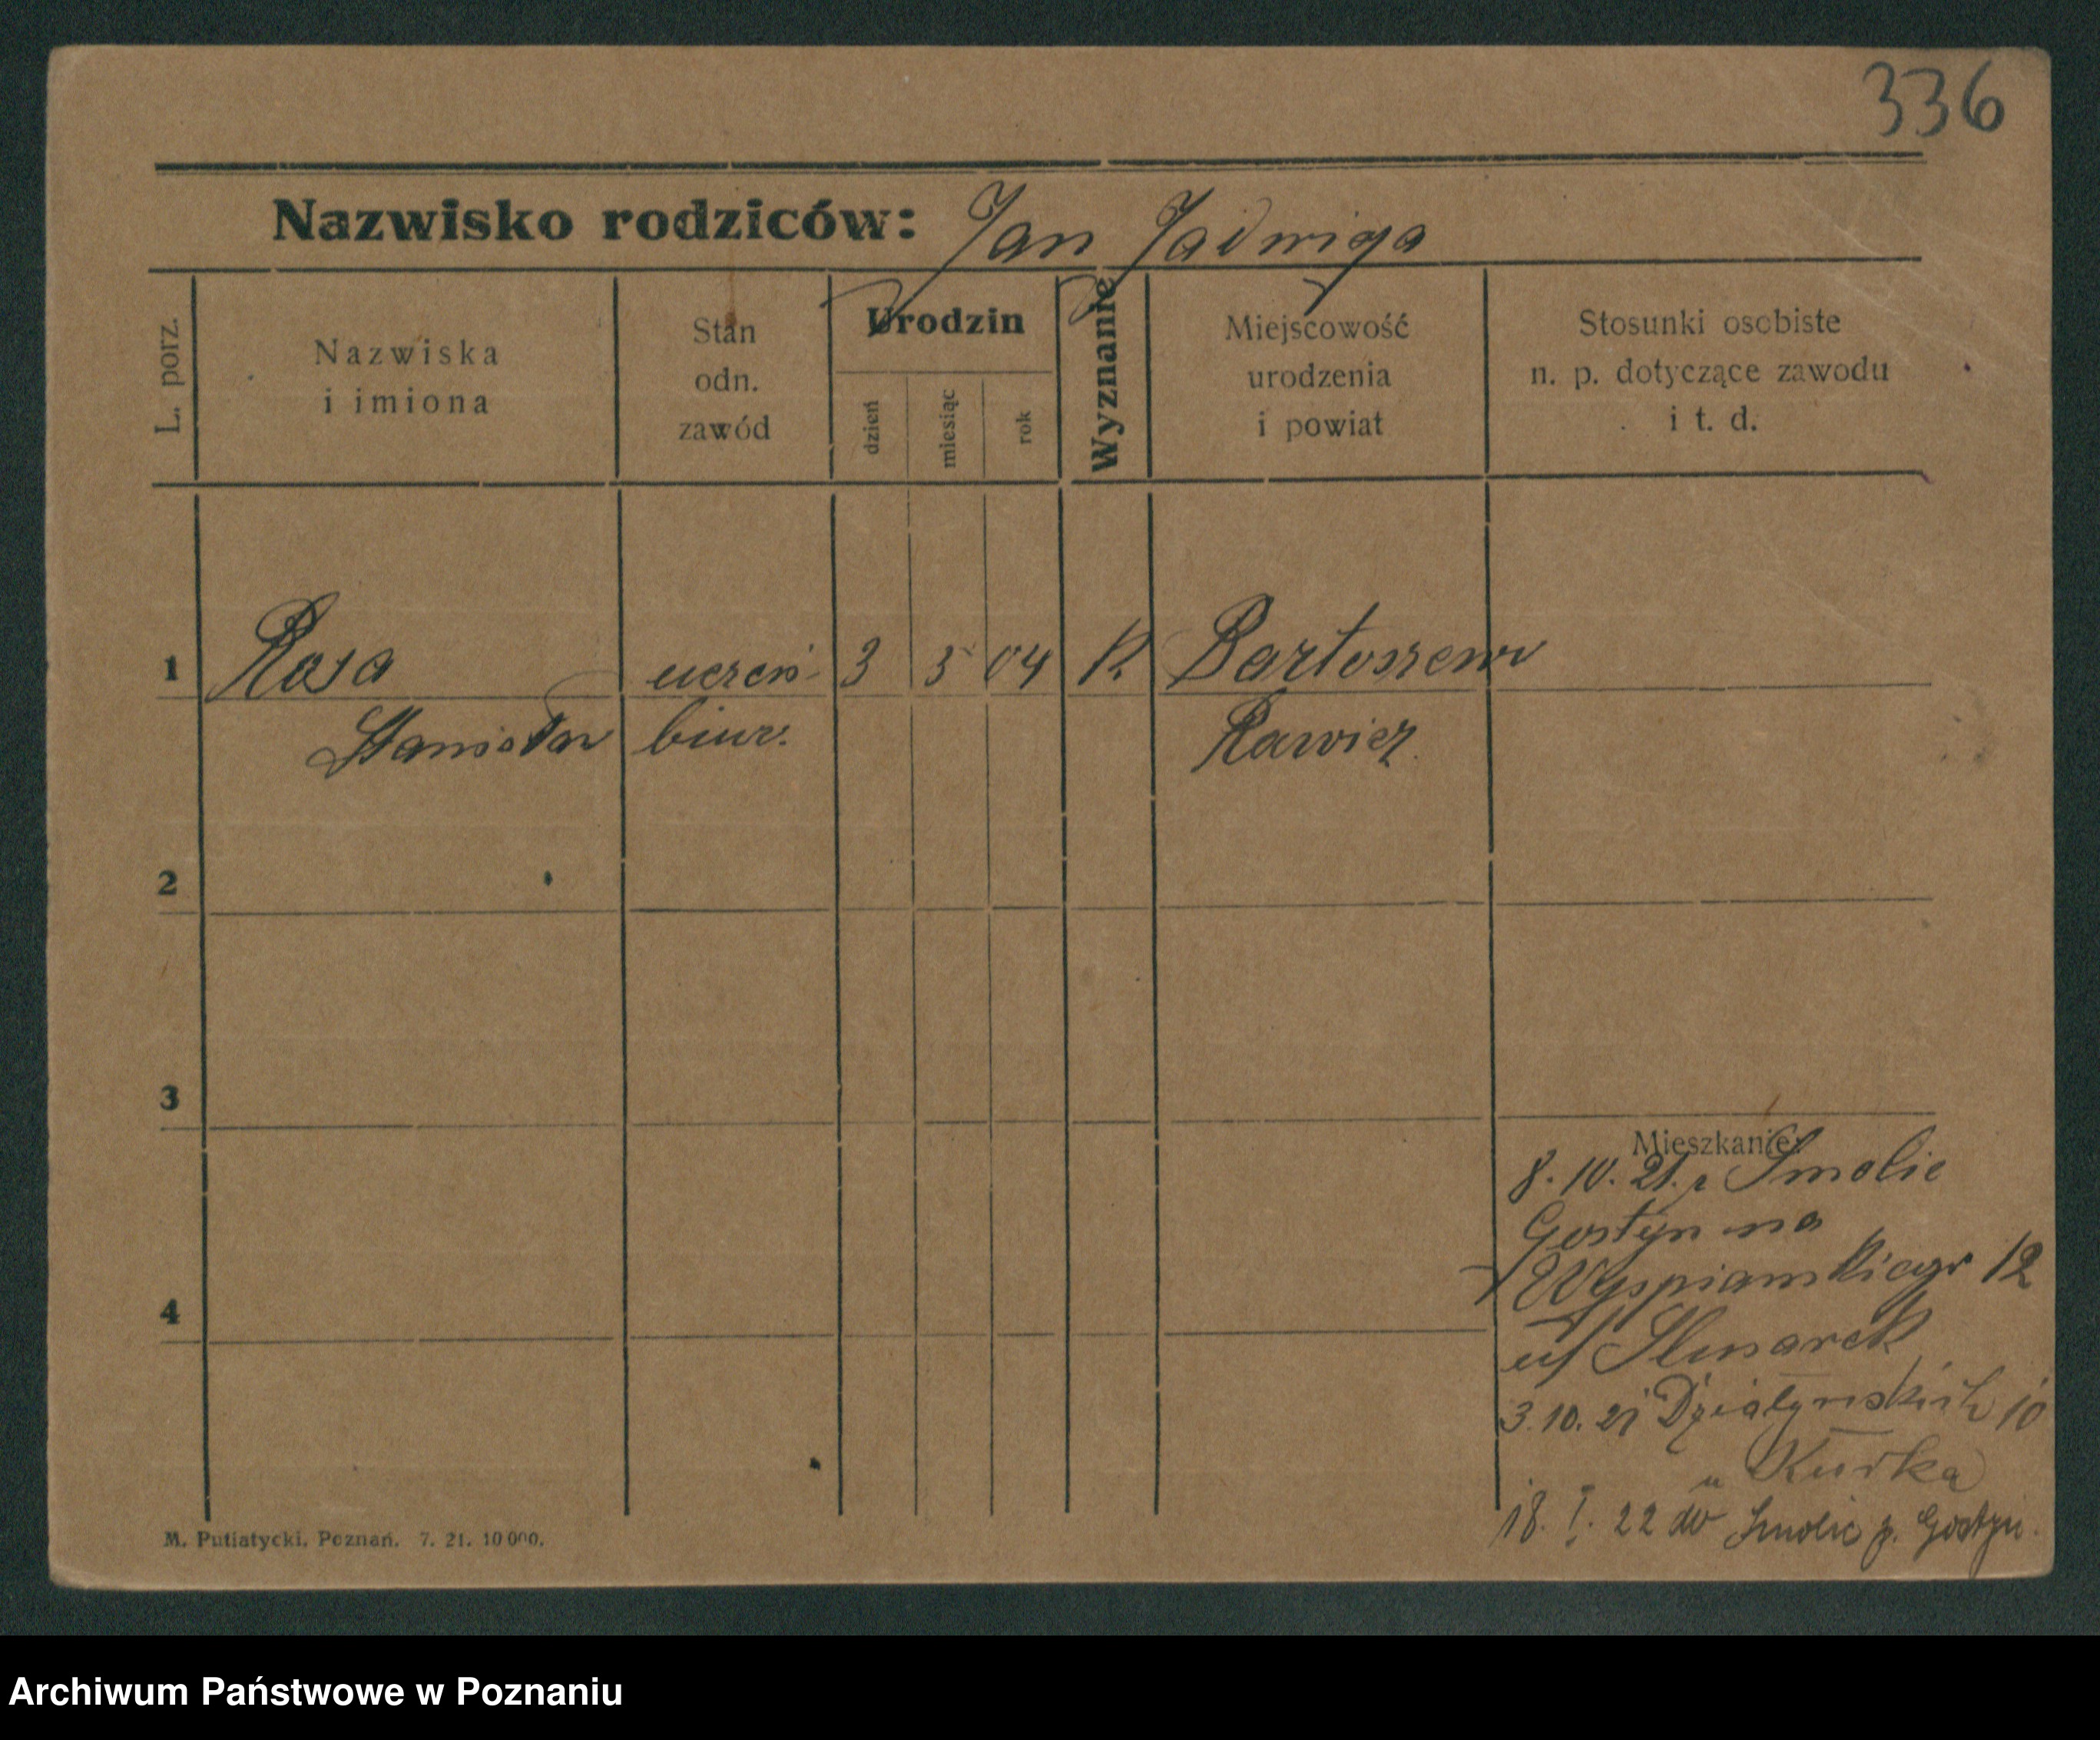 336
Nazwisko rodziców: Jan Jadwiga
L. porz.
Nazwiska
i imiona
Stan
odn.
zawód
Urodzin
dzień
miesiąc
rok
Wyznanie
Miejscowość
urodzenia
i powiat
Stosunki osobiste
n. p. dotyczące zawodu
i t. d.
1 Rosa uczeń 3 5 04 K Bartoszew
Stanisław biur. Rawicz.
2
3
Mieszkanie:
8. 10. 21. z Smolic
Gostyn na
Wyspiańskiego 12
4
u/ Slusarek
3. 10. 21 Działyńskich 10
u Kurka
18. I. 22 do Smolic p. Gostyn.
M. Putiatycki, Poznań. 7. 21. 10000.
Archiwum Państwowe w Poznaniu